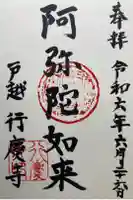 奉拝
令和六年六月二十六日
阿弥陀如来
戸越 行慶寺